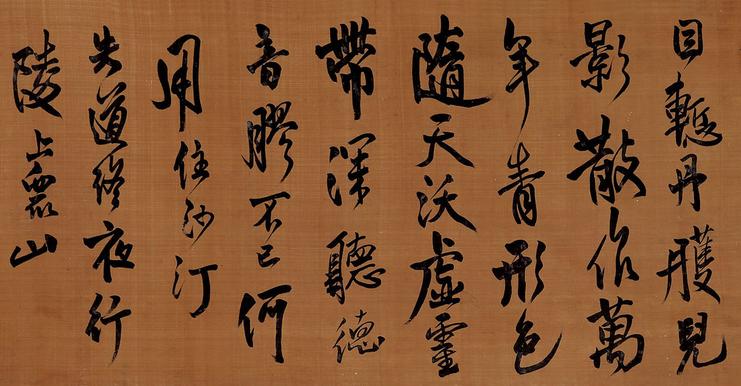 目蹔丹臒兒
影散作萬
年青形色
隨天沃虛靈
帶深聽德
音膠不已何
用住沙汀
失道終夜行
陵上震山